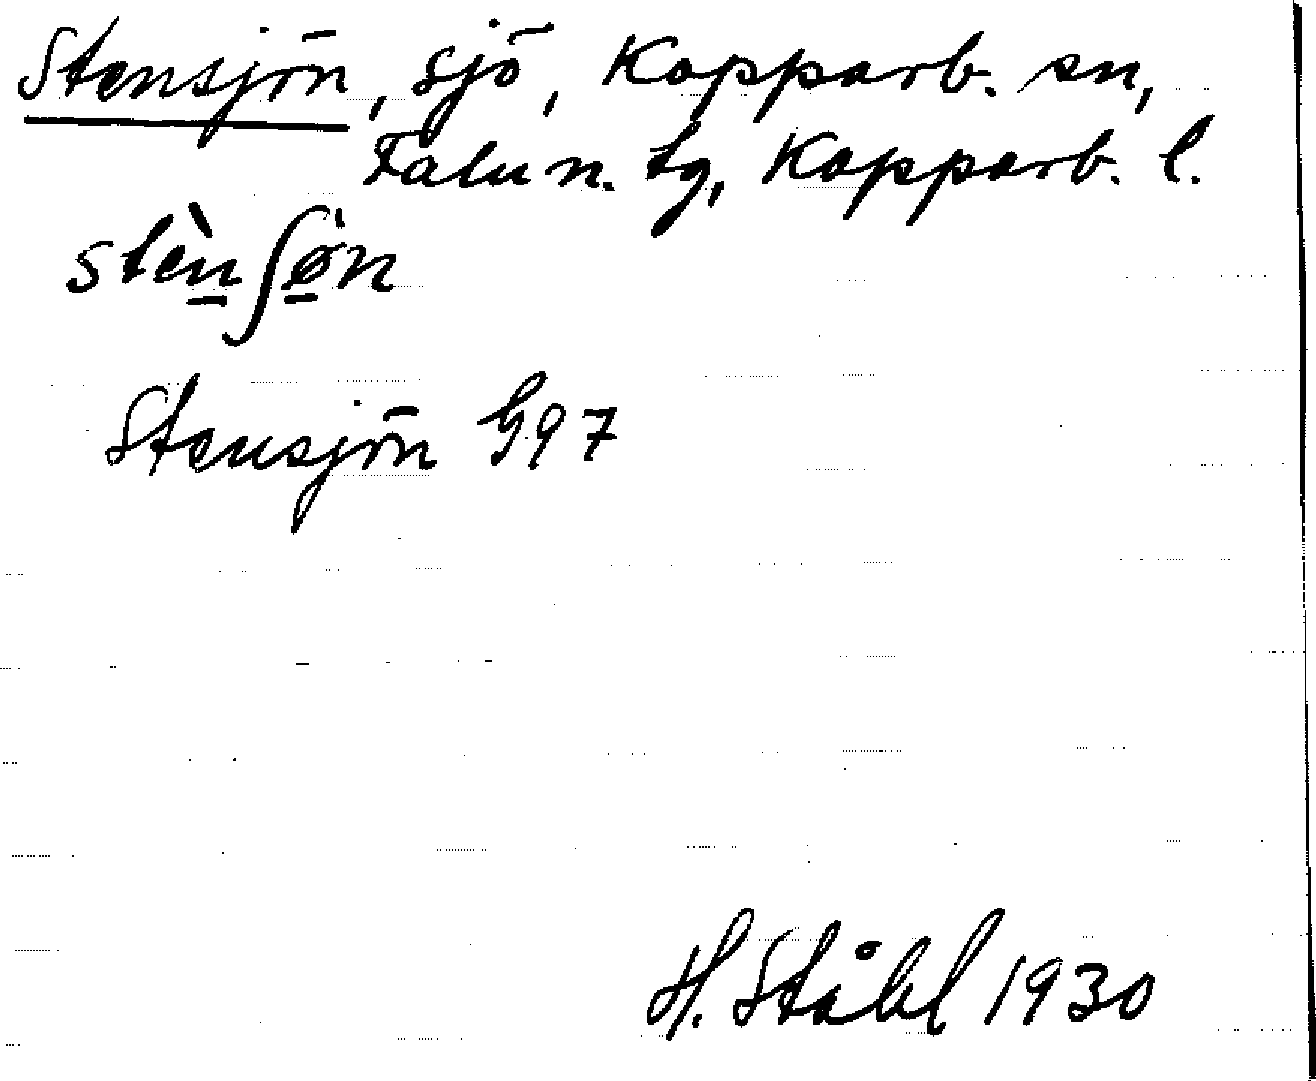 Stensjön, sjö, Kopparb. sn,
Falu n. tg, Kopparb. l.
stèn̲ʃø̲̀n
Stensjön G97
H. Ståhl 1930